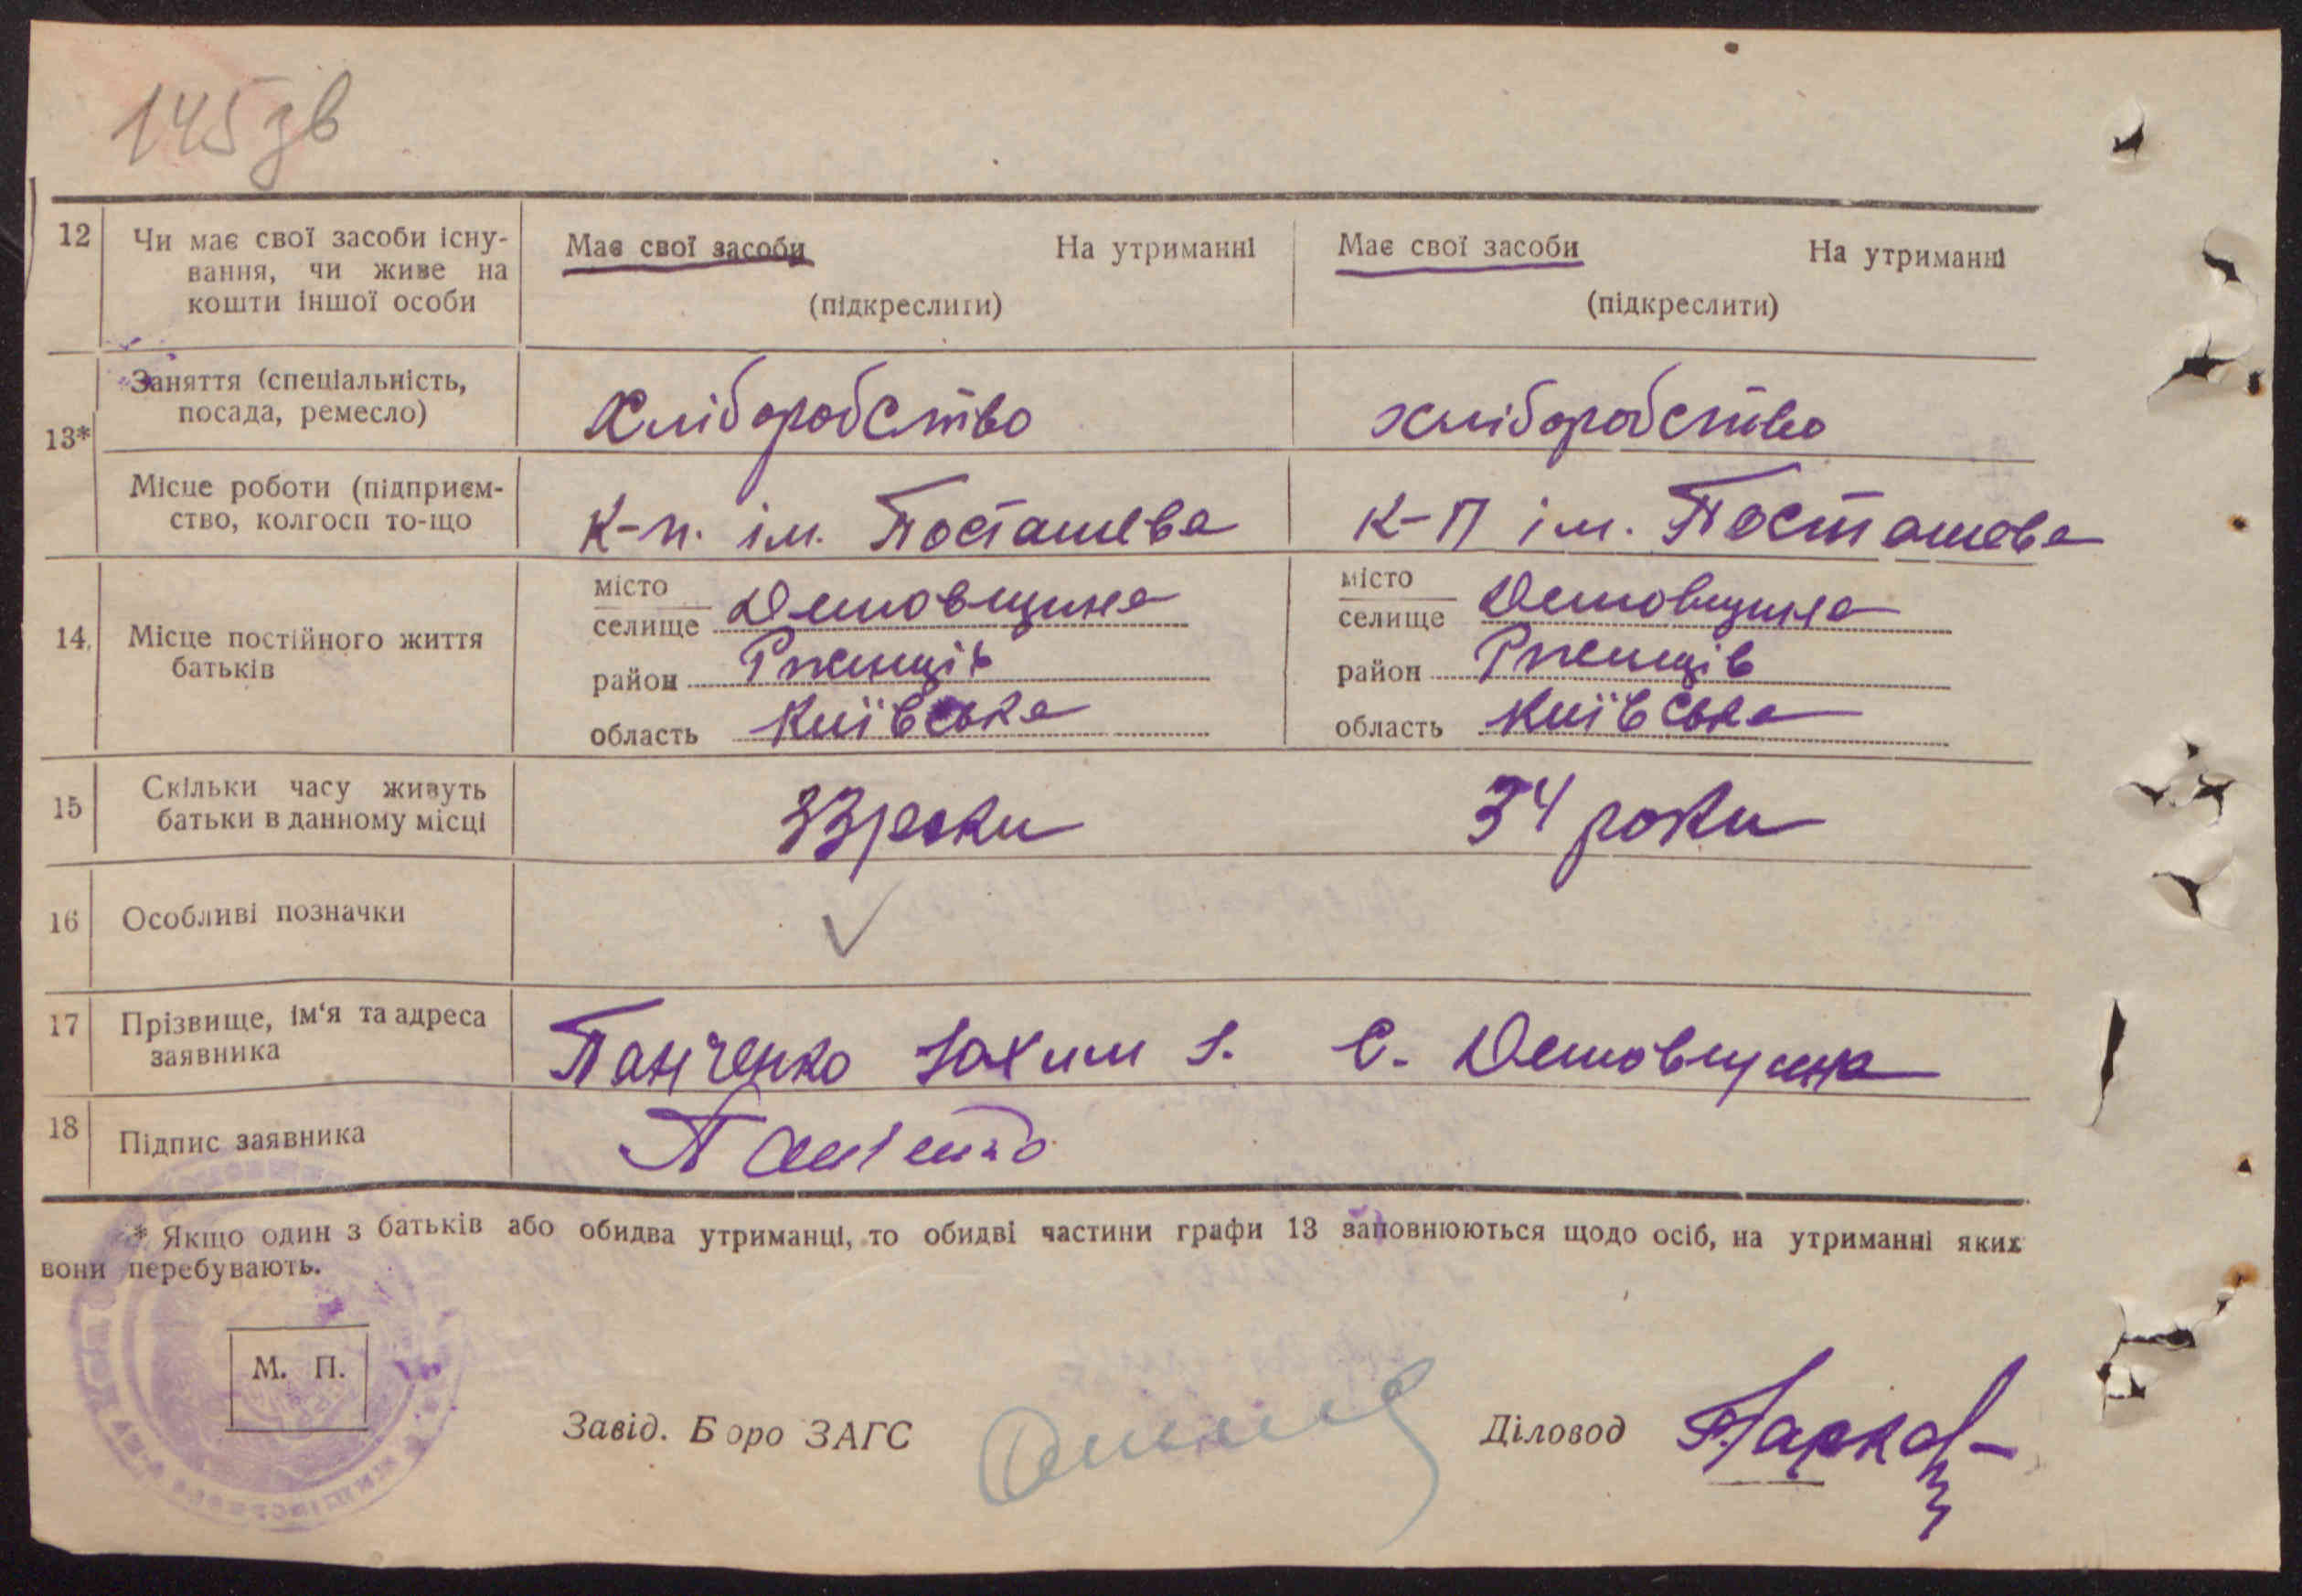 145 зв
12 Чи має свої засоби існу- Має свої засоби На утриманні Має свої засоби На утриманні
вання, чи живе на
кошти іншої особи (підкреслити) (підкреслити)
Заняття (спеціальність,
посада, ремесло) Хліборобство хліборобство
13*
Місце роботи (підприєм-
ство, колгосп то-що К-п. ім. Посташева К-П ім. Посташева
місто місто
селище Демовщина селище Демовщина
14. Місце постійного життя
батьків район Ржищів район Ржищів
область Київська область Київська
15 Скільки часу живуть
батьки в данному місці 33 роки 34 роки
16 Особливі позначки
17 Прізвище, ім'я та адреса
заявника Панченко Яхим І. С. Демовщина
18 Підпис заявника Панченко
* Якщо один з батьків або обидва утриманці, то обидві частини графи 13 заповнюються щодо осіб, на утриманні яких
вони перебувають.
М. П.
Завід. Бюро ЗАГС Діловод